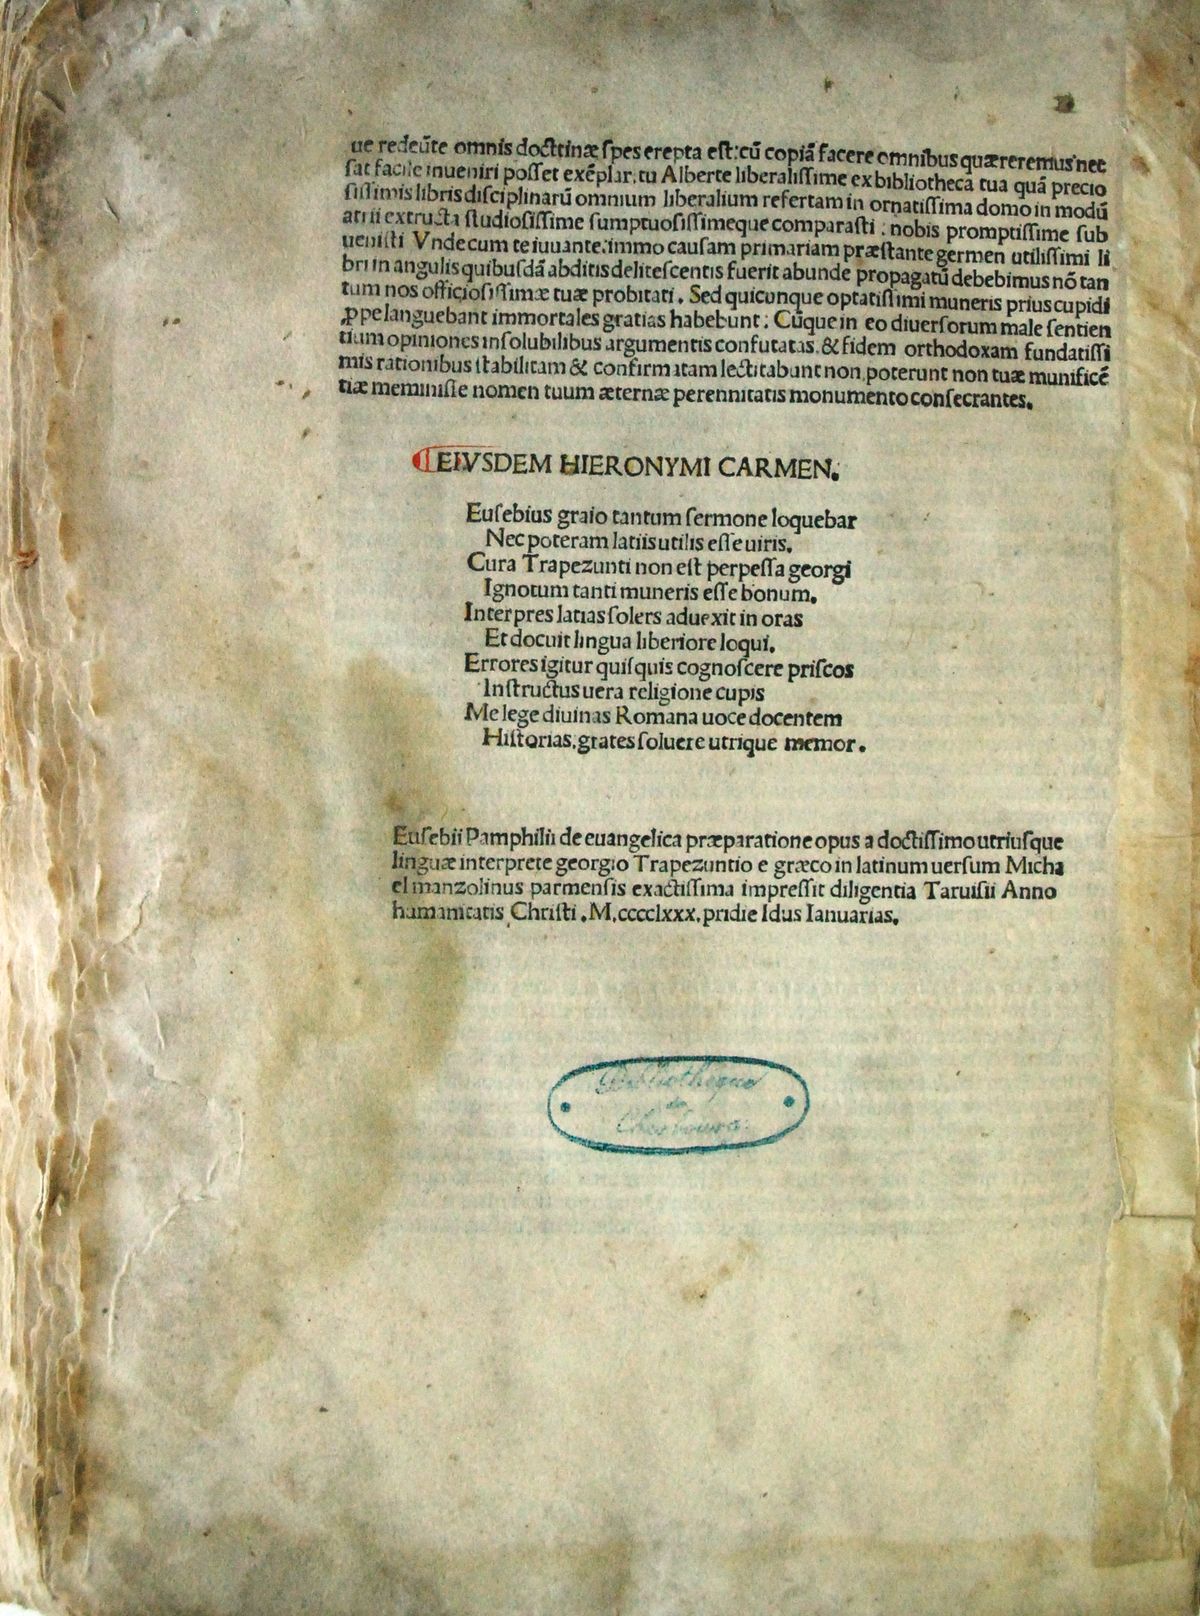 ue redeũte omnis doctrinæ ſpes erepta eſt: cũ copiã facere omnibus quæreremus nec
ſat facile inueniri poſſet exẽplar, tu Alberte liberaliſſime ex bibliotheca tua quã precio
ſiſſimis libris diſciplinarũ omnium liberalium refertam in ornatiſſima domo in modũ
atrii extructa ſtudioſiſſime ſumptuoſiſſimeque comparaſti: nobis promptiſſime ſub
ueniſti Vnde cum te iuuante: immo cauſam primariam præſtante germen utiliſſimi li
bri in angulis quibuſdã abditis deliteſcentis fuerit abunde propagatũ debebimus nõ tan
tum nos officioſiſſimæ tuæ probitati. Sed quicunque optatiſſimi muneris prius cupidi
ꝓpe languebant immortales gratias habebunt: Cũque in eo diuerſorum male ſentien
tium opiniones inſolubilibus argumentis confutatas, & fidem orthodoxam fundatiſſi
mis rationibus ſtabilitam & confirmatam lectitabunt non poterunt non tuæ munificẽ
tiæ meminiſſe nomen tuum æternæ perennitatis monumento conſecrantes.
EIVSDEM HIERONYMI CARMEN.
Euſebius graio tantum ſermone loquebar
Nec poteram latiis utilis eſſe uiris.
Cura Trapezunti non eſt perpeſſa georgi
Ignotum tanti muneris eſſe bonum.
Interpres latias ſolers aduexit in oras
Et docuit lingua liberiore loqui.
Errores igitur quiſquis cognoſcere priſcos
Inſtructus uera religione cupis
Me lege diuinas Romana uoce docentem
Hiſtorias, grates ſoluere utrique memor.
Euſebii Pamphilii de euangelica præparatione opus a doctiſſimo utriuſque
linguæ interprete georgio Trapezuntio e græco in latinum uerſum Micha
el manzolinus parmenſis exactiſſima impreſſit diligentia Taruiſii Anno
humanitatis Chriſti .M.cccclxxx. pridie Idus Ianuarias.
Bibliothèque
de
Cherbourg